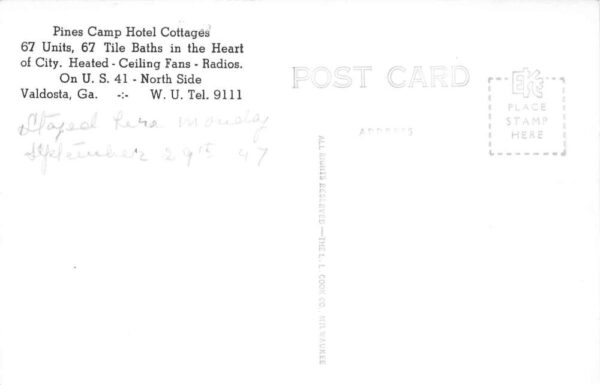 Pines Camp Hotel Cottages
67 Units, 67 Tile Baths in the Heart
of City. Heated - Ceiling Fans - Radios.
On U. S. 41 - North Side
Valdosta, Ga. -:- W. U. Tel. 9111
Stayed here monday
September 29th 47
POST CARD
ADDRESS
EKC
PLACE
STAMP
HERE
ALL RIGHTS RESERVED—THE L. L. COOK CO., MILWAUKEE